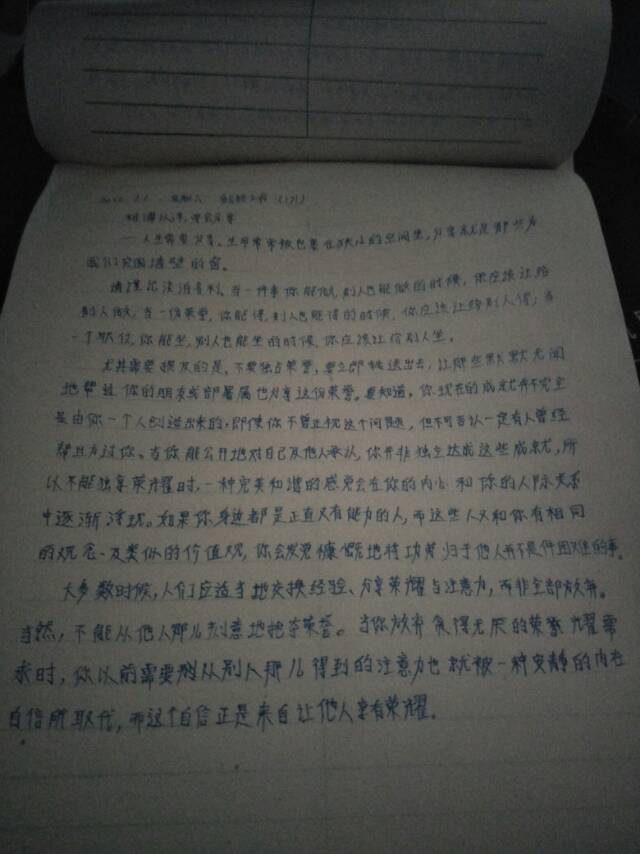 星期六 (171)
谦让，
一 人生需要分享。生命常常被包裹在狭小的空间里，分享就是那些为
我们突围墙壁的窗。
请谨记谈消有利。当一件事你能做，别人也能做的时候，你应该让给
别人做；当一份荣誉，你能得，别人也能得的时候，你应该让给别人得；当
一个职位，你能坐，别人也能坐的时候，你应该让给别人坐。
尤其需要提及的是，不要独占荣誉，要立即转送出去，让那些默默无闻
地帮过你的朋友或部署属也分享这份荣誉。要知道，你现在的成就并不完全
是由你一个人创造出来的，即使你不曾正视这个问题，但不可否认一定有人曾经
帮且为过你。当你能公开地对自己及他人承认，你并非独立达成这些成就，所
以不能独享荣耀时，一种完美和谐的感觉会在你的内心和你的人际关系
中逐渐浮现。如果你身边都是正直又有能力的人，而这些人又和你有相同
的观念、及类似的价值观，你会发觉慷慨地将功劳归于他人并不是件困难的事。
大多数时候，人们应适当地交换经验、分享荣耀与注意力，而非全部放弃。
当然，不能从他人那儿刻意地把夺荣誉。当你放弃贪得无厌的荣誉耀需
求时，你以前需要从别人那儿得到的注意力也就被一种安静的内在
自信所取代，而这个自信正是来自让他人享有荣耀。